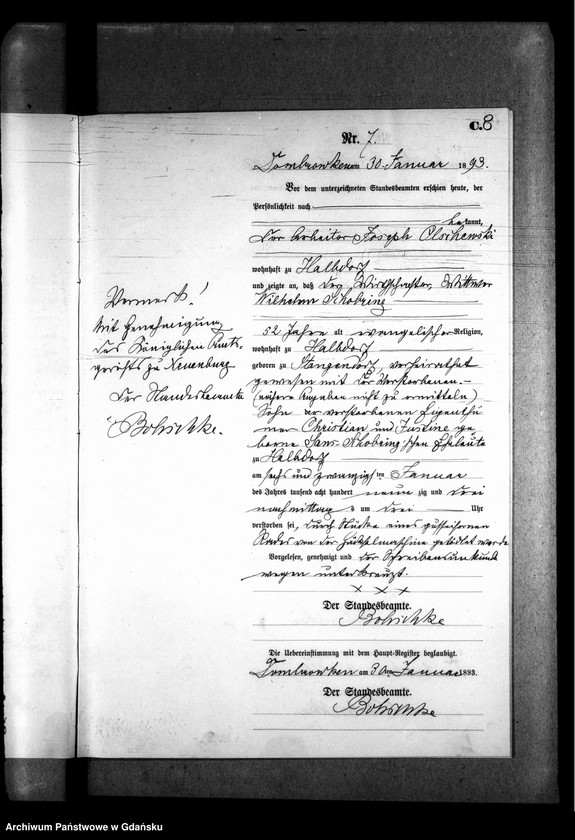 C. 8
Nr. 7.
Dombrowken am 30 Januar 1893.
Vor dem unterzeichneten Standesbeamten erschien heute, der
Persönlichkeit nach
bekannt,
der Arbeiter Joseph Olschewski
wohnhaft zu Halbdorf
und zeigte an, daß der Wirthschafter, Wittwer
Wilhelm Schobring
52 Jahre alt evangelischer Religion,
wohnhaft zu Halbdorf
geboren zu Stangendorf, verheirathet
gewesen mit der Verstorbenen. –
(nähere Angaben nicht zu ermitteln)
Sohn der verstorbenen Eigenthü
mer Christian und Justine ge
borene Schobring'schen Eheleute
zu Halbdorf
am sechs und zwanzigsten Januar
des Jahres tausend acht hundert neunzig und drei
nachmittag s um drei Uhr
verstorben sei, durch Stücke eines gusseisernen
Rades von der Häckselmaschine getödtet worde
Vorgelesen, genehmigt und der Schreibensunkunde
wegen unterkreuzt.
x x x
Der Standesbeamte.
Bohschke
Die Uebereinstimmung mit dem Haupt-Register beglaubigt.
Dombrowken am 30 ten Januar 1893.
Der Standesbeamte.
Bohschke
Vermerk!
Mit Genehmigung
des Königlichen Amts-
gerichts zu Neuenburg
Der Standesbeamte
Bohschke.
Archiwum Państwowe w Gdańsku